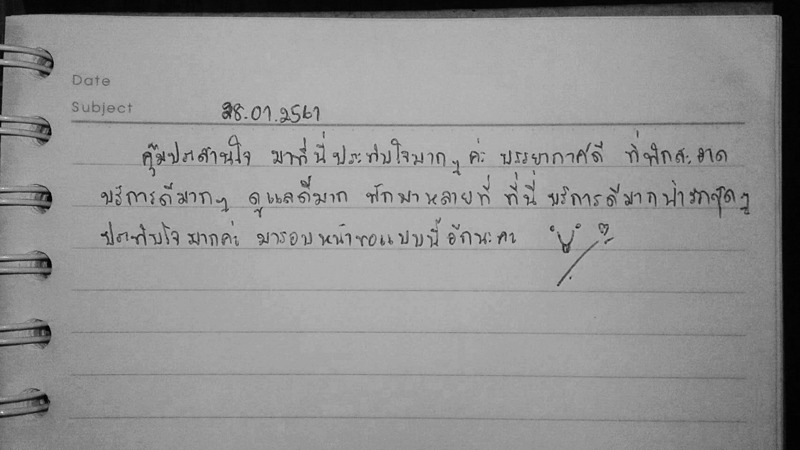 Date
Subject 28.01.2561
คุ้มประสานใจ มาที่นี่ประทับใจมากๆ ค่ะ บรรยากาศดี ที่พักสะอาด
บริการดีมากๆ ดูแลดีมาก พักมาหลายที่ ที่นี่ บริการดีมากน่ารักสุดๆ
ประทับใจมากค่ะ มารอบหน้าขอแบบนี้อีกนะคะ